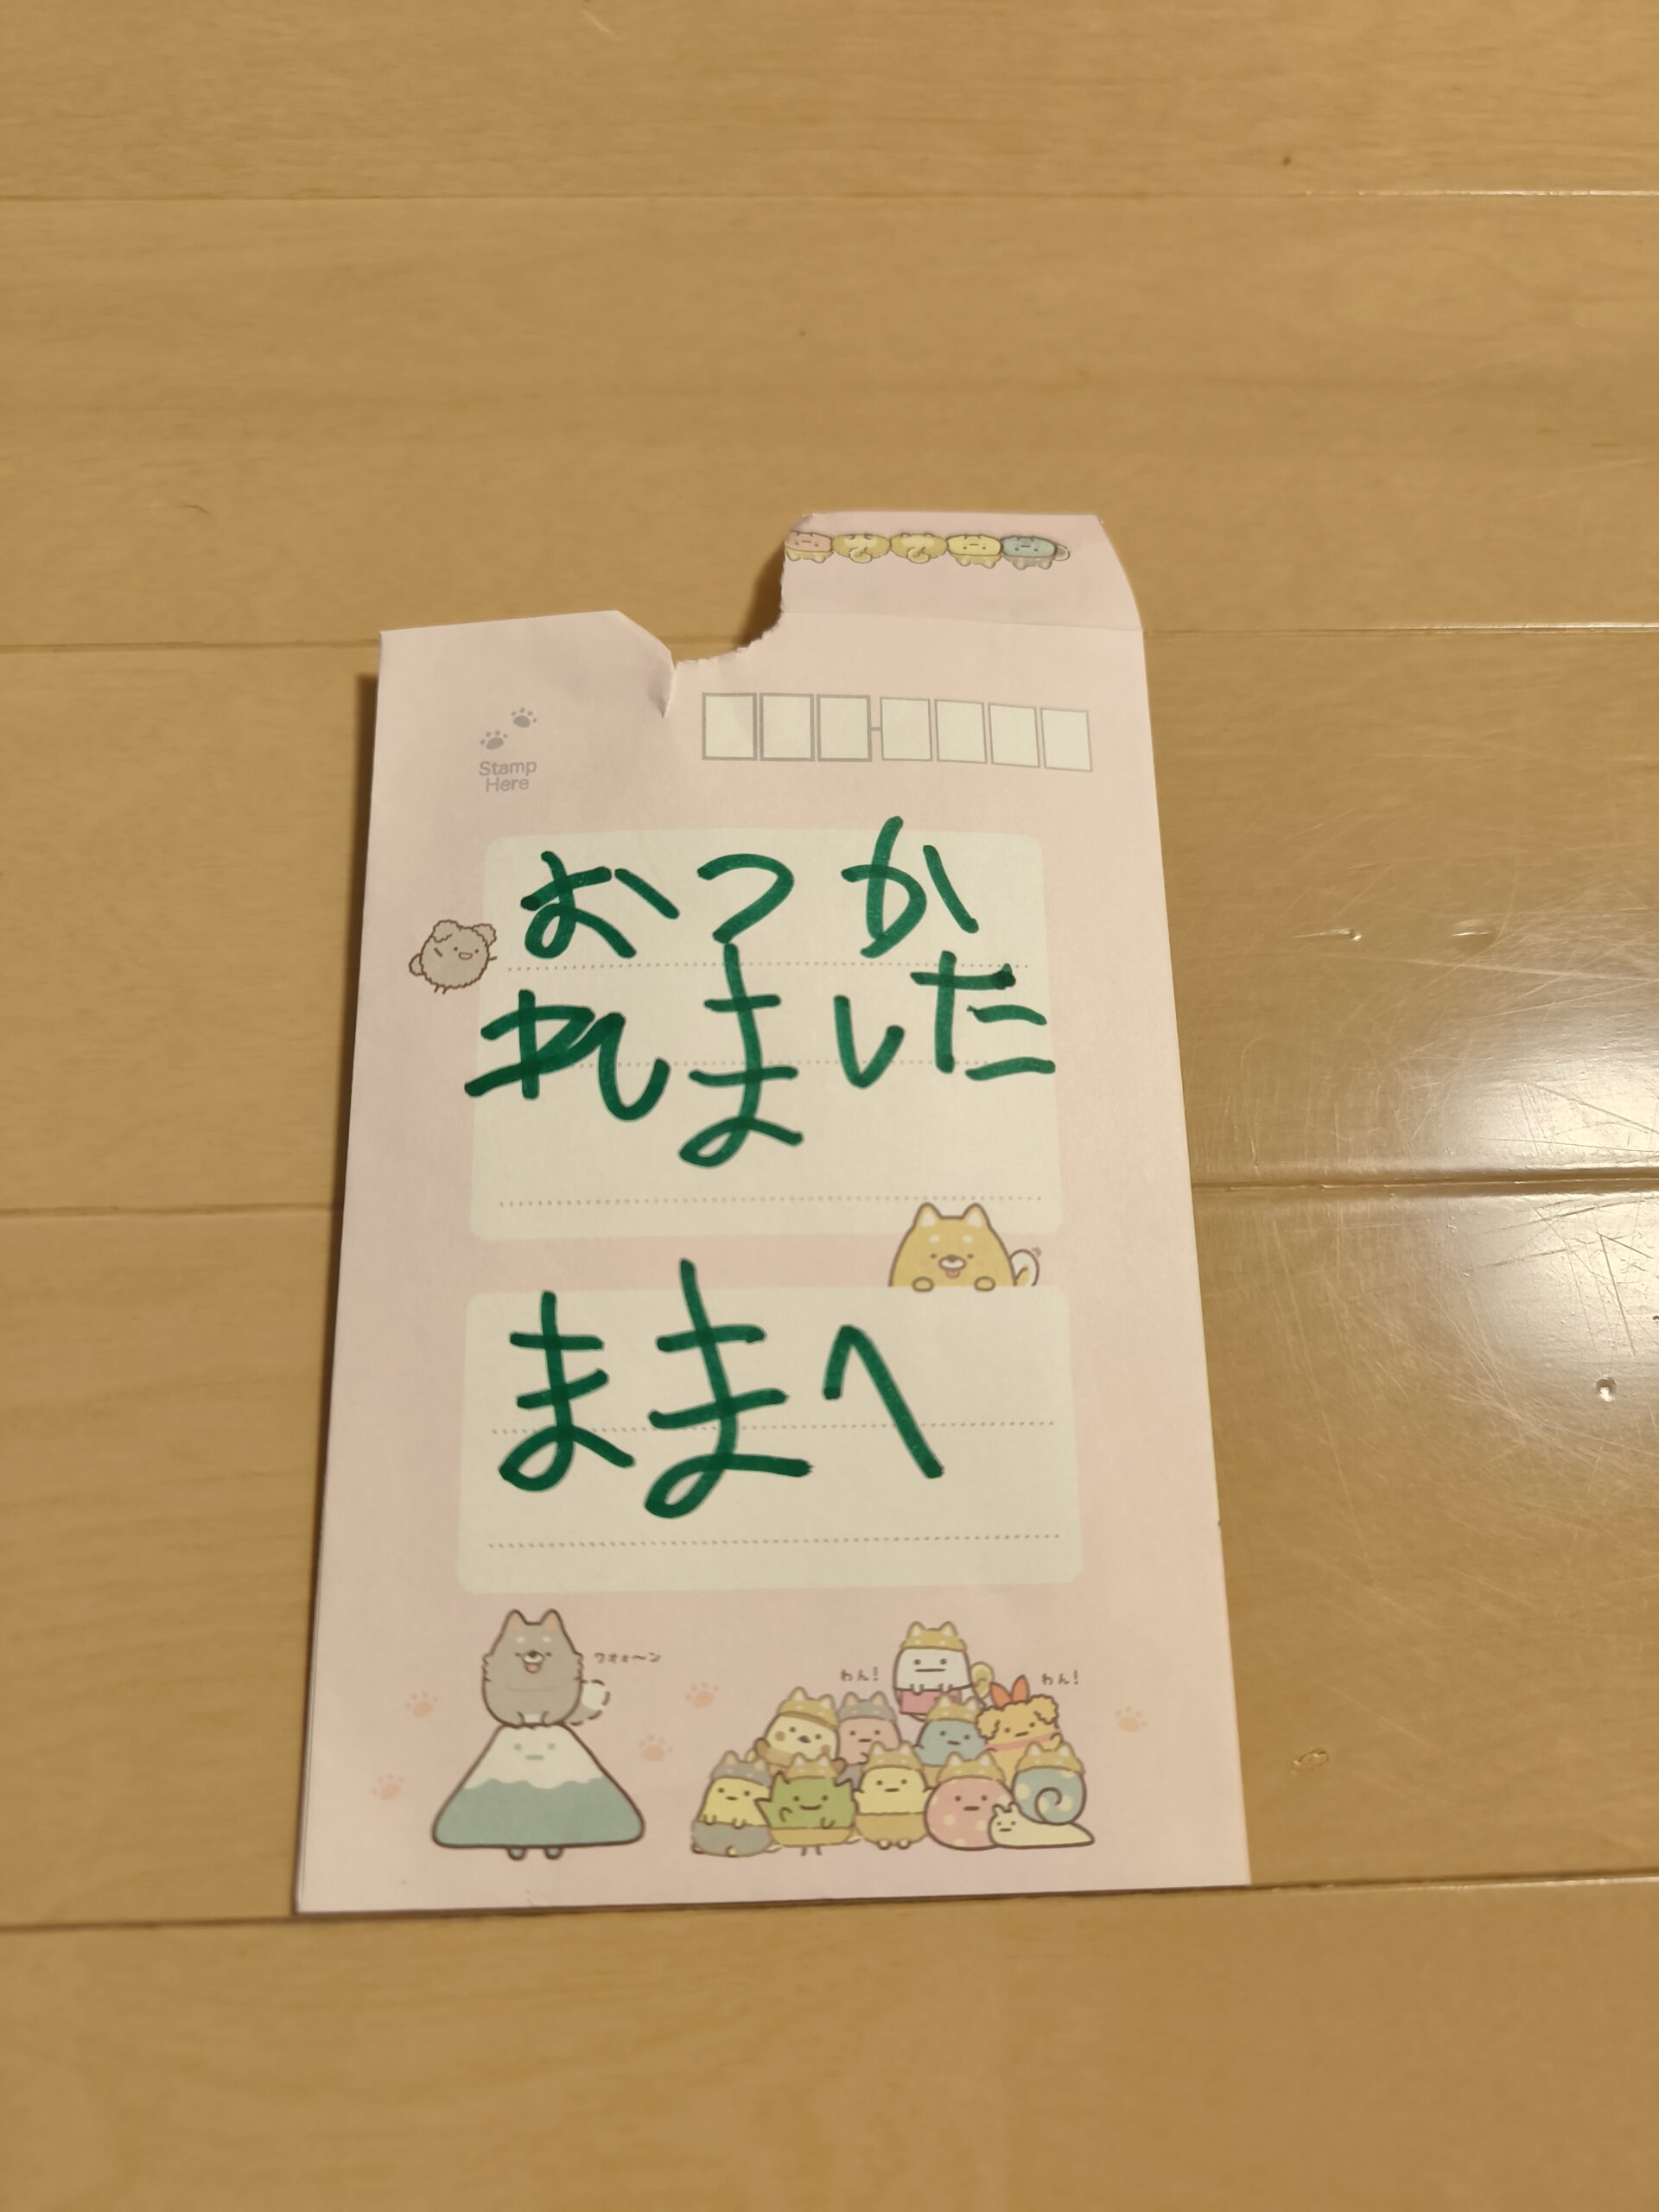 Stamp
Here
おつか
れしました
ままへ
ワオォ〜ン
わん!
わん!